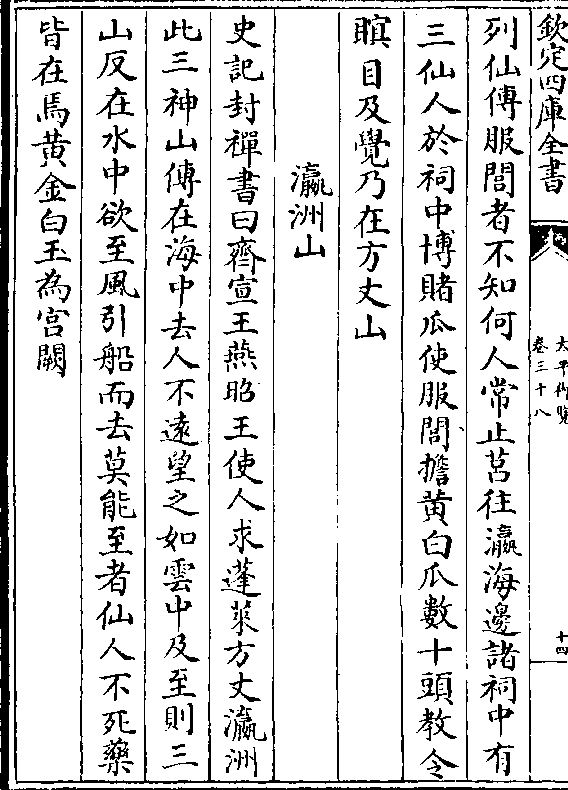 欽定四庫全書
太平御覽
卷三十八
十四
列仙傳服閭者不知何人常止莒往瀛海邊諸祠中有
三仙人於祠中博賭瓜使服閭擔黄白瓜數十頭教令
瞑目及覺乃在方丈山
瀛洲山
史記封禪書曰齊宣王燕昭王使人求蓬萊方丈瀛洲
此三神山傳在海中去人不逺望之如雲中及至則三
山反在水中欲至風引船而去莫能至者仙人不死藥
皆在焉黄金白玉為宫闕